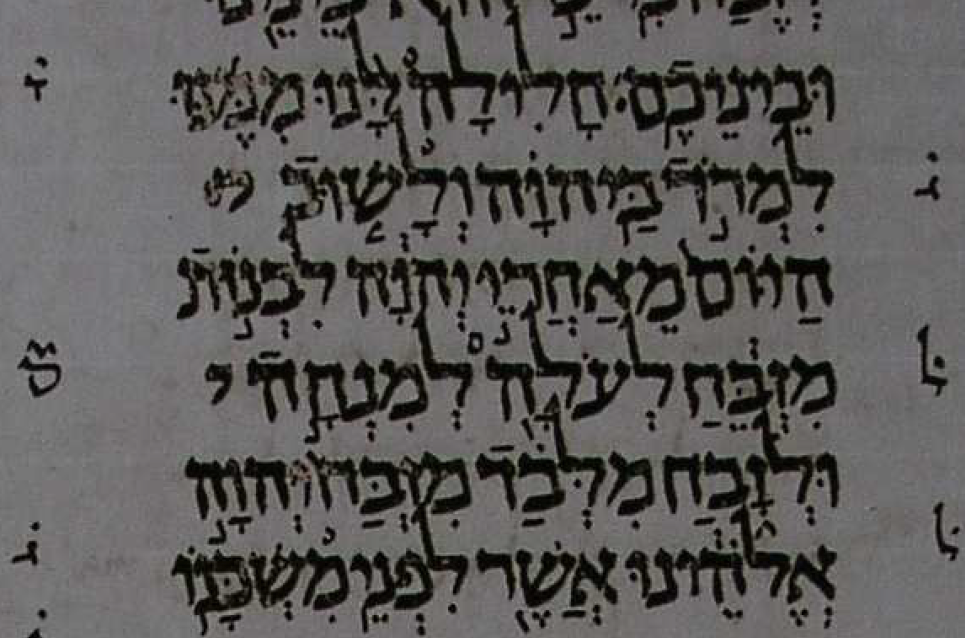 וּבֵינֵיכֶם׃ חָלִילָה לָּנוּ מִמֶּנּוּ
לִמְרֹד בַּיהוָה וְלָשׁוּב
הַיּוֹם מֵאַחֲרֵי יְהוָה לִבְנוֹת
מִזְבֵּחַ לְעֹלָה לְמִנְחָה ל
וּלְזָבַח מִלְּבַד מִזְבַּח יְהוָה
אֱלֹהֵינוּ אֲשֶׁר לִפְנֵי מִשְׁכָּנוֹ ל